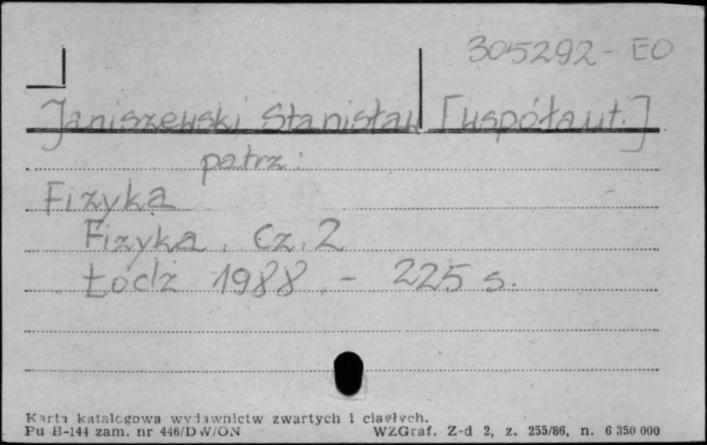 305292 - EO
Janiszewski Stanisław [współaut.]
patrz:
Fizyka
Fizyka. Cz. 2
Łódź 1988. - 225 s.
Karta katalogowa wydawnictw zwartych i ciągłych.
Pu B-144 zam. nr 446/DW/ON WZGraf. Z-d 2, z. 255/86, n. 6 350 000